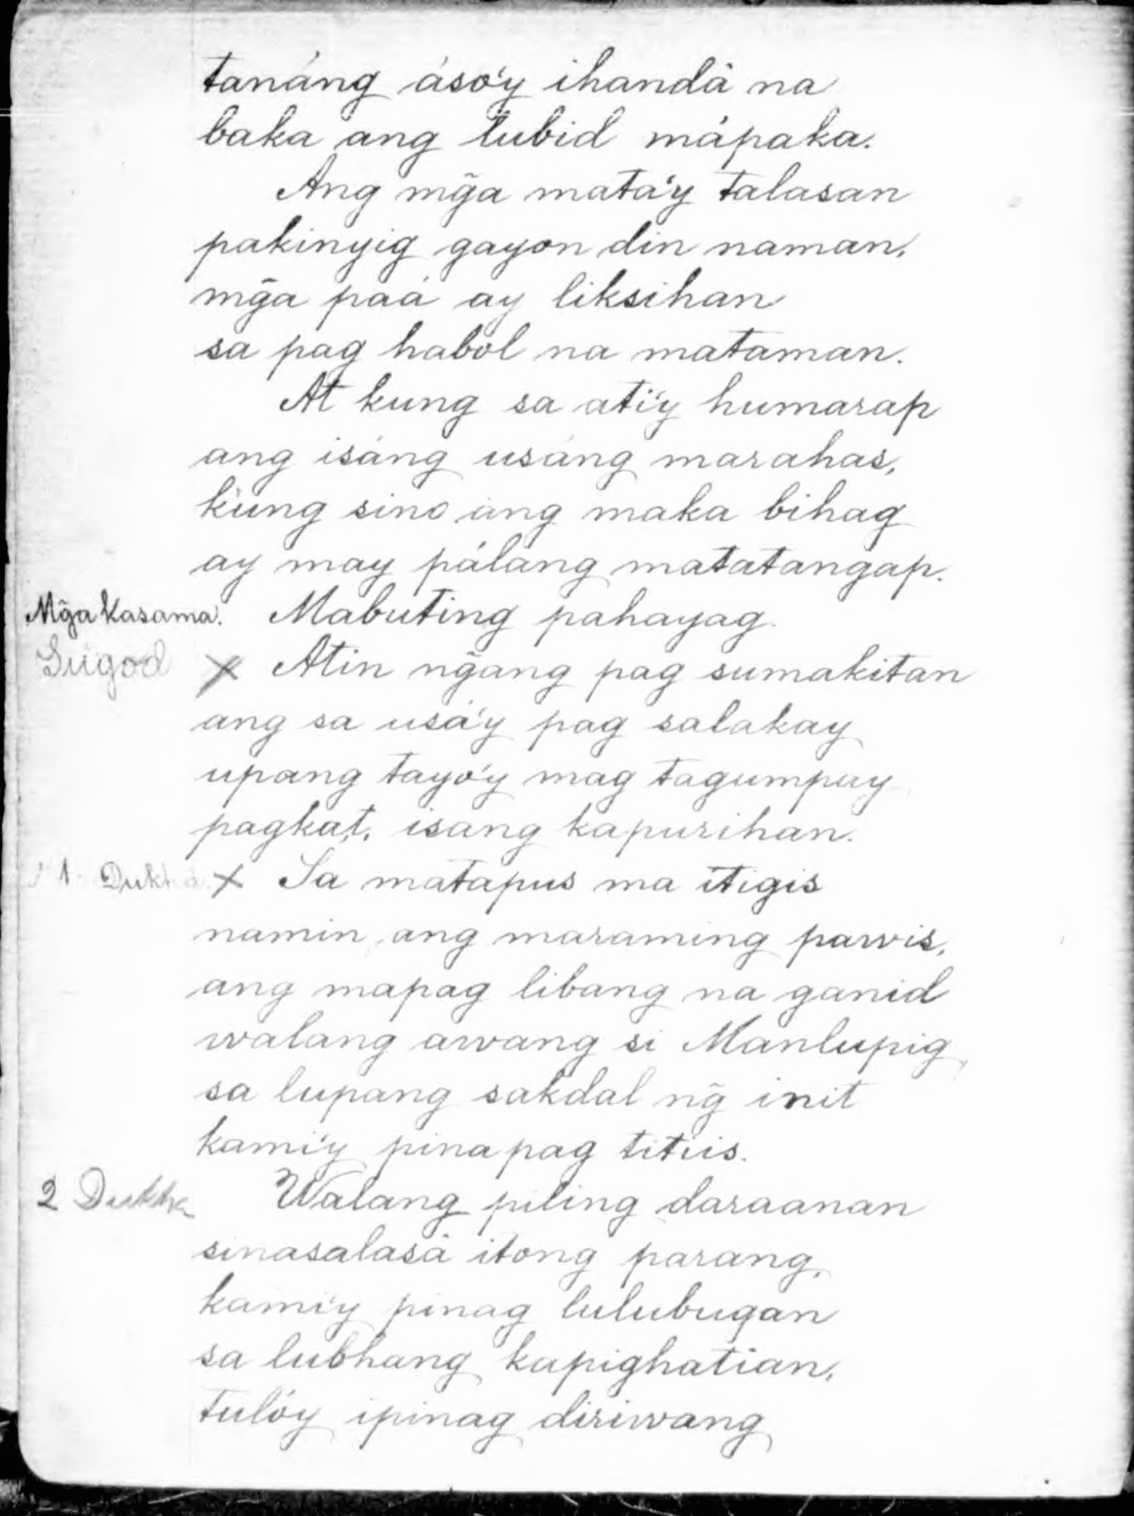 tanáng áso'y ihandâ na
baka ang lubid mápaka.
Ang mg̃a mata'y talasan
pakinyig gayon din naman,
mg̃a paá ay liksihan
sa pag habol na mataman.
At kung sa ati'y humarap
ang isáng usáng marahas,
kung sino ang maka bihag
ay may pálang matatangap.
Mg̃a Kasama. Mabuting pahayag.
Sugod x Atin ng̃ang pag sumakitan
ang sa usá'y pag salakay
upang tayo'y mag tagumpay
pagkat, isang kapurihan.
1 Dukha. x Sa matapus ma itigis
namin ang maraming pawis,
ang mapag libang na ganid
walang awang si Manlupig,
sa lupang sakdal ng̃ init
kami'y pinapag titiis.
2 Dukha Walang piling daraanan
sinasalasà itong parang,
kami'y pinag lulubugan
sa lubhang kapighatian,
tulóy ipinag diriwang